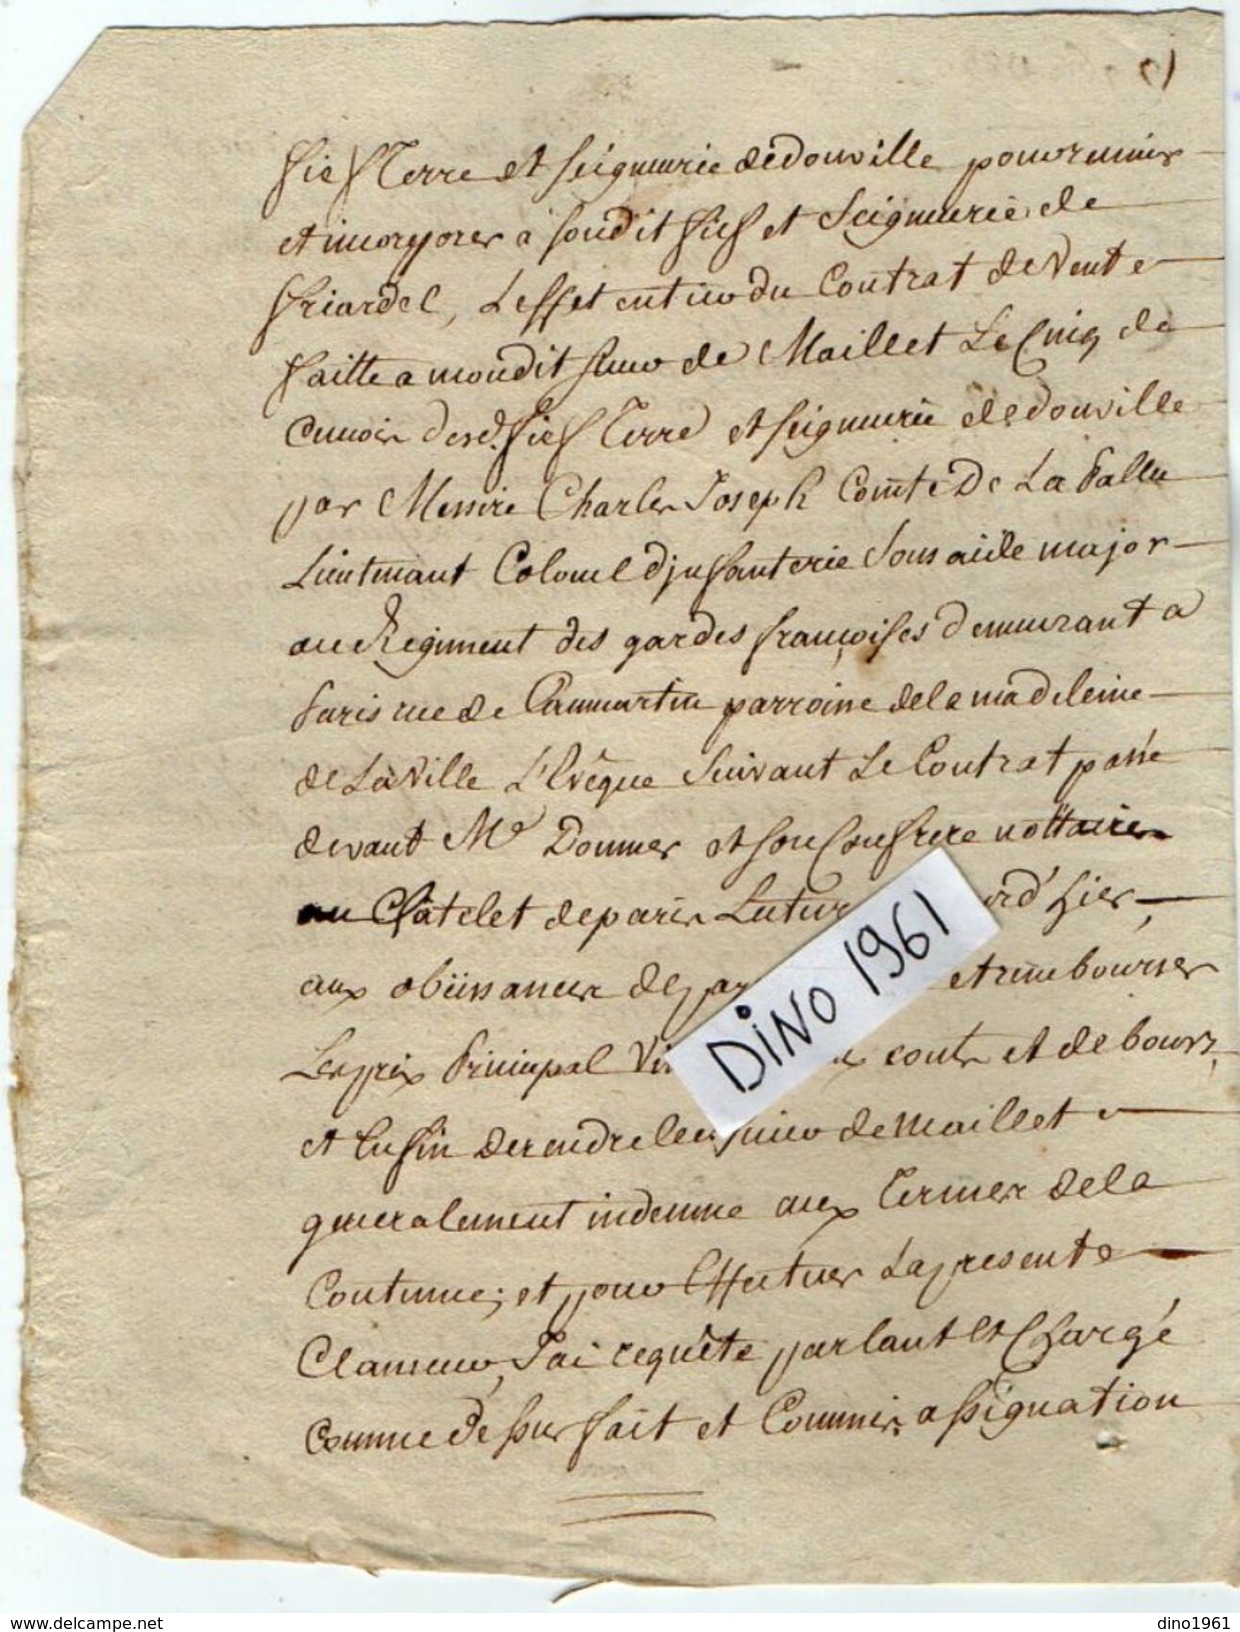 fief Terre et seigneurie dedouville pour reunir
et incorporer a soudit fief et Seigneurie de
friardel, L'effet entier du Contrat de Vente
faitte a mondit sieur de Maillet Le Cniq de
Cunoir desd. fief Terre et seigneurie dedouville
par Messire Charles Joseph Comte De La Pallu
Lieutenant Colonel d'jnfanterie Sous aide major
au Regiment des gardes françoises demeurant a
Paris rue de Caumartin parroisse dela madeleine
de La Ville L'Evêque Suivant Le Contrat passé
devant Me Donner et son Confrere nottaires
au Châtelet deparis Lecture d'hier
aux obéissances de et rembourser
Les prix Principal couts et debours,
et Enfin de rendre led. sieur de Maillet
generalement indemne aux Termes dela
Coutume; et pour Effectuer La presente
Clameur, J'ai requête parlant et Chargé
comme dessus fait et Commis assignation
DiNO 1961
delcampe.net
dino1961